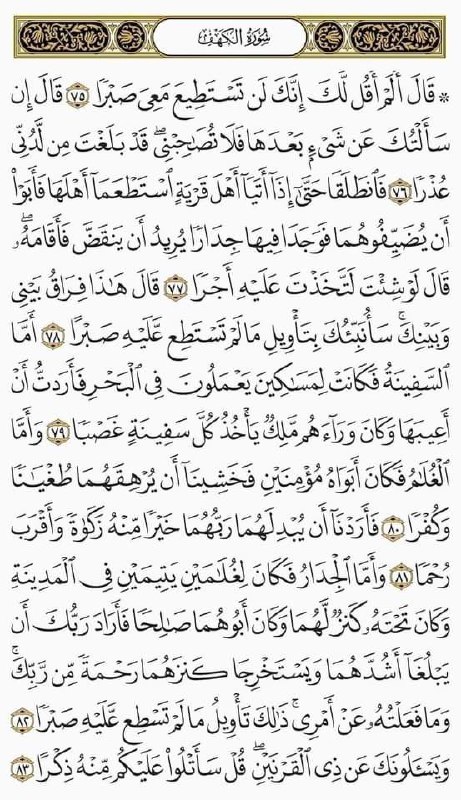 سُورَةُ الكَهْفِ
۞ قَالَ أَلَمْ أَقُل لَّكَ إِنَّكَ لَن تَسْتَطِيعَ مَعِىَ صَبْرٗا ٧٥ قَالَ إِن
سَأَلْتُكَ عَن شَىْءِۭ بَعْدَهَا فَلَا تُصَٰحِبْنِىۖ قَدْ بَلَغْتَ مِن لَّدُنِّى
عُذْرٗا ٧٦ فَٱنطَلَقَا حَتَّىٰٓ إِذَآ أَتَيَآ أَهْلَ قَرْيَةٍ ٱسْتَطْعَمَآ أَهْلَهَا فَأَبَوْا۟
أَن يُضَيِّفُوهُمَا فَوَجَدَا فِيهَا جِدَارٗا يُرِيدُ أَن يَنقَضَّ فَأَقَامَهُۥۖ
قَالَ لَوْ شِئْتَ لَتَّخَذْتَ عَلَيْهِ أَجْرٗا ٧٧ قَالَ هَٰذَا فِرَاقُ بَيْنِى
وَبَيْنِكَۚ سَأُنَبِّئُكَ بِتَأْوِيلِ مَا لَمْ تَسْتَطِع عَّلَيْهِ صَبْرًا ٧٨ أَمَّا
ٱلسَّفِينَةُ فَكَانَتْ لِمَسَٰكِينَ يَعْمَلُونَ فِى ٱلْبَحْرِ فَأَرَدتُّ أَنْ
أَعِيبَهَا وَكَانَ وَرَآءَهُم مَّلِكٞ يَأْخُذُ كُلَّ سَفِينَةٍ غَصْبٗا ٧٩ وَأَمَّا
ٱلْغُلَٰمُ فَكَانَ أَبَوَاهُ مُؤْمِنَيْنِ فَخَشِينَآ أَن يُرْهِقَهُمَا طُغْيَٰنٗا
وَكُفْرٗا ٨٠ فَأَرَدْنَآ أَن يُبْدِلَهُمَا رَبُّهُمَا خَيْرٗا مِّنْهُ زَكَوٰةٗ وَأَقْرَبَ
رُحْمٗا ٨١ وَأَمَّا ٱلْجِدَارُ فَكَانَ لِغُلَٰمَيْنِ يَتِيمَيْنِ فِى ٱلْمَدِينَةِ
وَكَانَ تَحْتَهُۥ كَنزٞ لَّهُمَا وَكَانَ أَبُوهُمَا صَٰلِحٗا فَأَرَادَ رَبُّكَ أَن
يَبْلُغَآ أَشُدَّهُمَا وَيَسْتَخْرِجَا كَنزَهُمَا رَحْمَةٗ مِّن رَّبِّكَۚ
وَمَا فَعَلْتُهُۥ عَنْ أَمْرِىۚ ذَٰلِكَ تَأْوِيلُ مَا لَمْ تَسْطِع عَّلَيْهِ صَبْرٗا ٨٢
وَيَسْـَٔلُونَكَ عَن ذِى ٱلْقَرْنَيْنِۖ قُلْ سَأَتْلُوا۟ عَلَيْكُم مِّنْهُ ذِكْرًا ٨٣